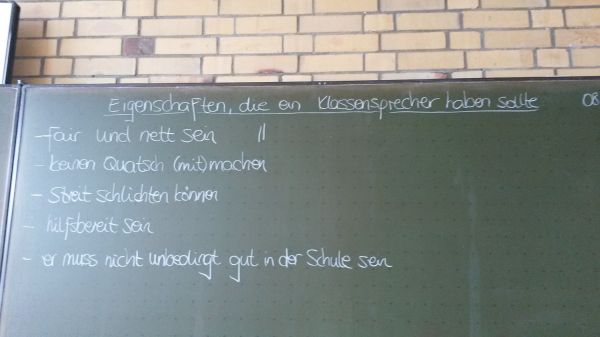 Eigenschaften, die ein Klassensprecher haben sollte 08
- Fair und nett sein ||
- keinen Quatsch (mit)machen
- Streit schlichten können
- hilfsbereit sein
- er muss nicht unbedingt gut in der Schule sein